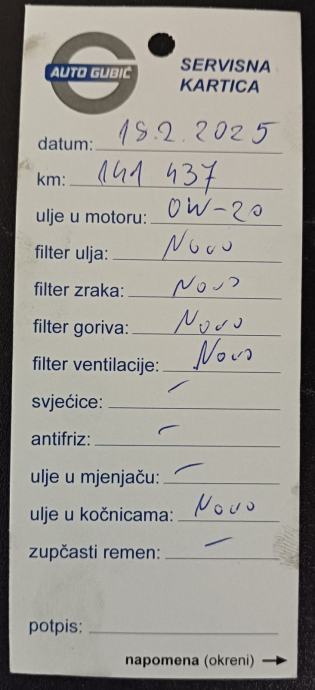 AUTO GUBIĆ
SERVISNA
KARTICA
datum: 18.2.2025
km: 141 437
ulje u motoru: 0W-20
filter ulja: Novo
filter zraka: Novo
filter goriva: Novo
filter ventilacije: Novo
svjećice: –
antifriz: –
ulje u mjenjaču: –
ulje u kočnicama: Novo
zupčasti remen: –
potpis:
napomena (okreni) →